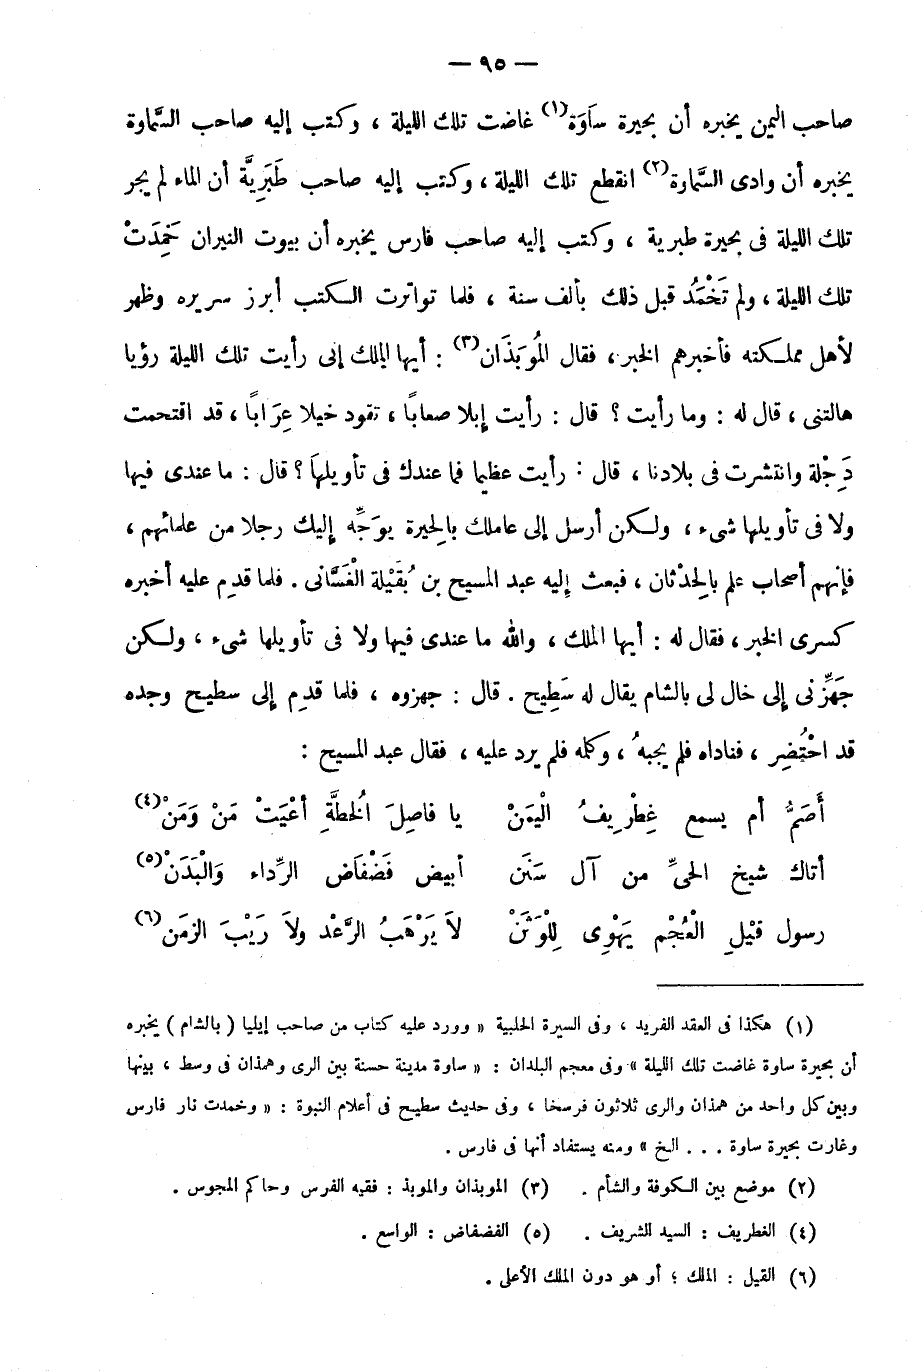 — ٩٥ —
صاحب اليمن يخبره أن بحيرة سَاوَة(١) غاضت تلك الليلة ، وكتب إليه صاحب السَّماوة
يخبره أن وادى السَّماوة(٢) انقطع تلك الليلة ، وكتب إليه صاحب طَبَرِيَّة أن الماء لم يجر
تلك الليلة فى بحيرة طبرية ، وكتب إليه صاحب فارس يخبره أن بيوت النيران خَمِدَتْ
تلك الليلة ، ولم تَخْمُدُ قبل ذلك بألف سنة ، فلما تواترت الكتب أبرز سريره وظهر
لأهل مملكته فأخبرهم الخبر ، فقال الْمُوبَذَان(٣) : أيها الملك إنى رأيت تلك الليلة رؤيا
هالتنى ، قال له : وما رأيت ؟ قال : رأيت إبلا صعابًا ، تقود خيلا عِرَابًا ، قد اقتحمت
دَِجْلة وانتشرت فى بلادنا ، قال : رأيت عظيما فما عندك فى تأويلها ؟ قال : ما عندى فيها
ولا فى تأويلها شىء ، ولكن أرسل إلى عاملك بالِحيرة يوَجِّه إليك رجلا من علمائهم ،
فإنهم أصحاب علم بالِحدْثان ، فبعث إليه عبد المسيح بن بُقَيْلة الْغَسَّانى . فلما قدِم عليه أخبره
كسرى الخبر ، فقال له : أيها الملك ، والله ما عندى فيها ولا فى تأويلها شىء ، ولكن
جَهِّزنى إلى خال لى بالشام يقال له سَطِيح . قال : جهزوه ، فلما قدِم إلى سطيح وجده
قد احْتُضِر ، فناداه فلم يجبهُ ، وكلمه فلم يرد عليه ، فقال عبد المسيح :
أَصَمُّ أم يسمع غِطْرِيفُ الْيَمَنْ يا فاصِلَ الُخطَّةِ أعْيَتْ مَنْ وَمَنْ(٤)
أتاك شيخ الحىِّ من آل سَنَن أبيض فَضْفَاض الرِّداء وَالْبَدَنْ(٥)
رسول قَيْلِ الْعُجْم يَهْوِى لِلْوَثَنْ لاَ يَرْهَبُ الرَّعْد ولاَ رَيْبَ الزمَن(٦)
(١) هكذا فى العقد الفريد ، وفى السيرة الحلبية « وورد عليه كتاب من صاحب إيليا ( بالشام ) يخبره
أن بحيرة ساوة غاضت تلك الليلة » وفى معجم البلدان : « ساوة مدينة حسنة بين الرى وهمذان فى وسط ، بينها
وبين كل واحد من همذان والرى ثلاثون فرسخا ، وفى حديث سطيح فى أعلام النبوة : « وخمدت نار فارس
وغارت بحيرة ساوة . . . الخ » ومنه يستفاد أنها فى فارس .
(٢) موضع بين الكوفة والشأم . (٣) الموبذان والموبذ : فقيه الفرس وحاكم المجوس .
(٤) الغطريف : السيد الشريف . (٥) الفضفاض : الواسع .
(٦) القيل : الملك ؛ أو هو دون الملك الأعلى .